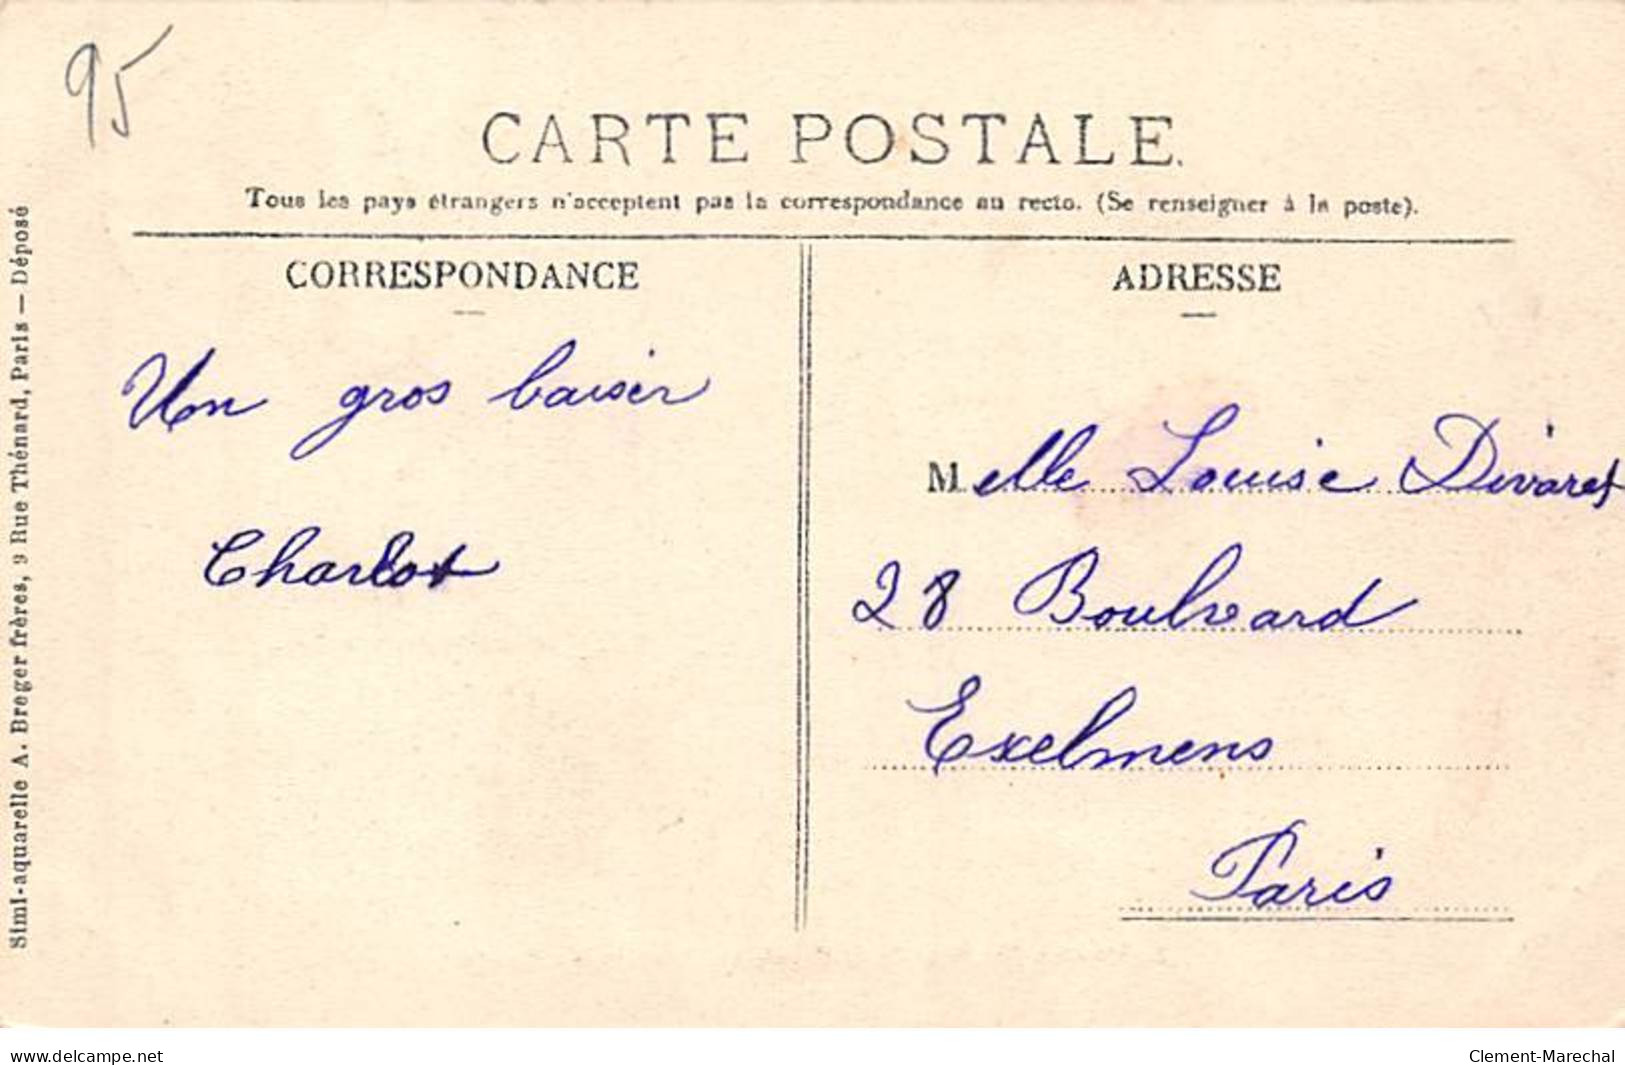 95
CARTE POSTALE.
Tous les pays étrangers n'acceptent pas la correspondance au recto. (Se renseigner à la poste).
CORRESPONDANCE
Un gros baiser
Charlot
ADRESSE
Melle Louise Divaret
28 Boulvard
Exelmens
Paris
Simi-aquarelle A. Breger frères, 9 Rue Thénard, Paris — Déposé
www.delcampe.net
Clement-Marechal